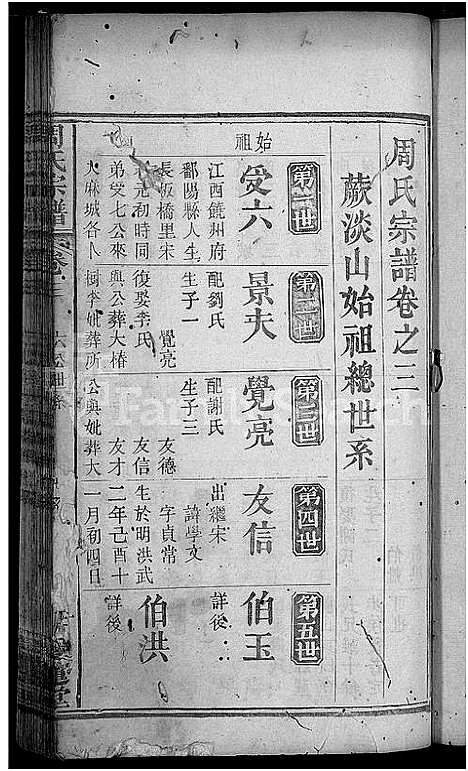 周氏宗譜卷之三
蕨淡山始祖總世系
第一世
第二世
第三世
第四世
第五世
始祖
受六
景夫
覺亮
友信
伯玉
江西饒州府
鄱陽縣人生
長板橋里宋
元初時同
弟受七公來
麻城各卜
配劉氏
生子一
覺亮
復娶李氏
與公葬大椿
樹李妣葬所
配謝氏
生子三
友德
友信
友才
公與妣葬大
出繼宋
諱學文
字貞常
生於明洪武
二年己酉十
一月初四日
詳後
伯洪
詳後
周氏宗譜